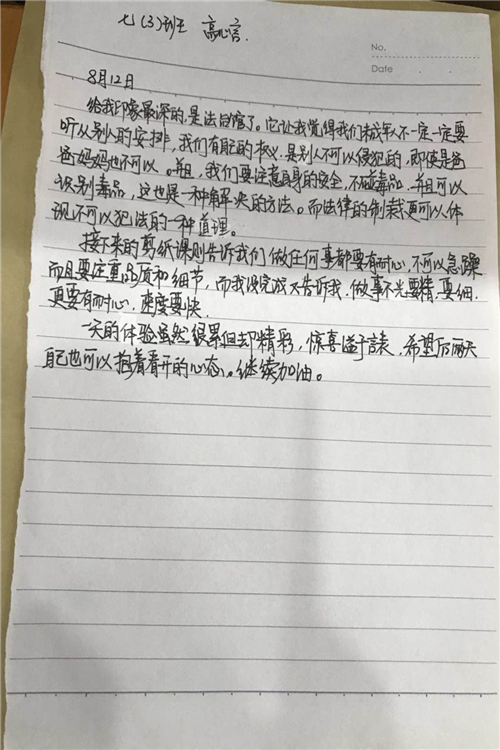 七(3)班 高心言.
No.
Date
8月12日
给我印象最深的,是法自馆了。它让我觉得我们未成年人不一定一定要
听从别人的安排,我们有自己的权义,是别人不可以侵犯的,即使是爸
爸妈妈也不可以。并且,我们要注意自身的安全,不碰毒品,并且可以
识别毒品,这也是一种解决的方法。而法律的制裁更可以体
现不可以犯法的一种道理。
接下来的剪纸课则告诉我们做任何事都要有耐心,不可以急躁
而且要注重品质和细节,而我没完成又告诉我,做事不光要精,要细,
更要有耐心,速度要快.
一天的体验虽然很累但却精彩,惊喜溢于言表,希望后面天
自己也可以抱着看开的心态。继续加油。